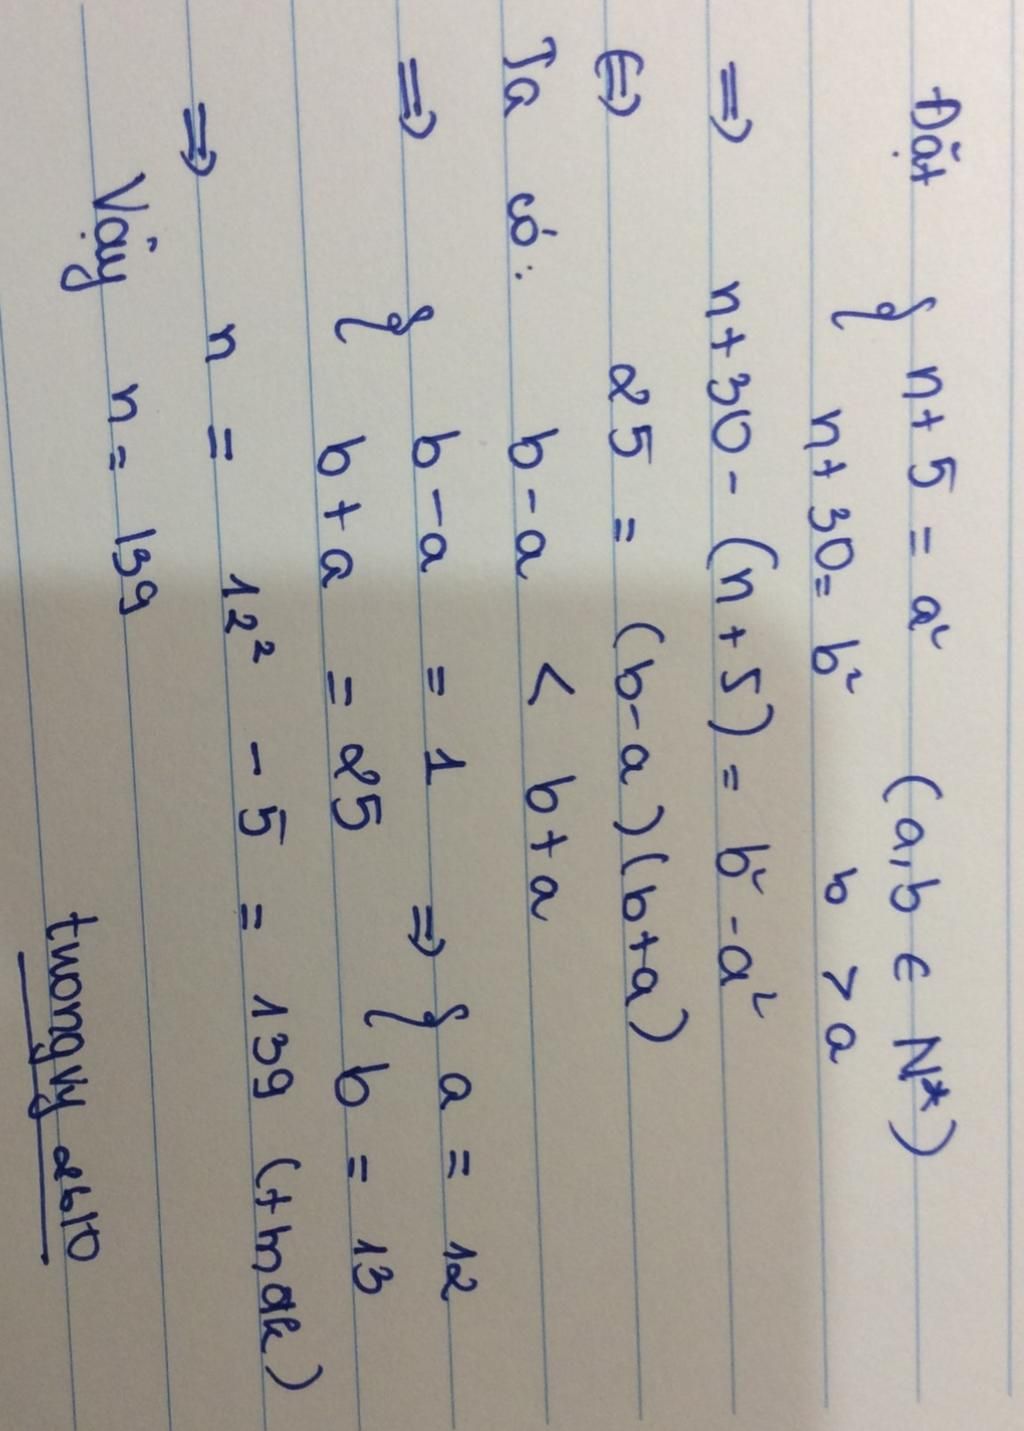 Đặt { n + 5 = a² (a, b ∈ N*)
{ n + 30 = b² b > a
⇒ n + 30 - (n + 5) = b² - a²
⇔ 25 = (b - a)(b + a)
Ta có: b - a < b + a
⇒ { b - a = 1 ⇒ { a = 12
{ b + a = 25 { b = 13
⇒ n = 12² - 5 = 139 (tmđk)
Vậy n = 139
tuongvy2610